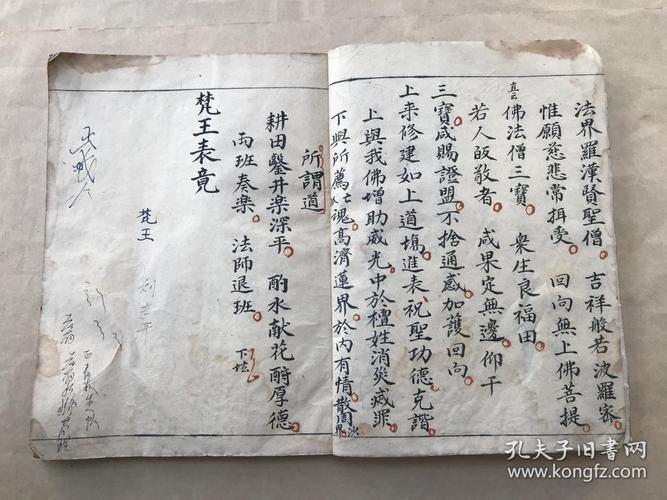 法界羅漢賢聖僧 吉祥般若波羅密
惟願慈悲常揖受 回向無上佛菩提
直云 佛法僧三寶 衆生良福田
若人皈敬者 咸果定無邊 仰干
三寶咸賜證盟不捨通感加護回向
上來修建如上道場進表祝聖功德克諧
上與我佛增助威光中於檀姓消災滅罪
下與所薦亡人魂高濟蓮界於內有情散周沙界
所謂道
耕田鑿井楽深平 酌水献花酧厚德
両班奏楽 法師退班 下坛
梵王表竟
梵王
孔夫子旧书网
www.kongfz.com